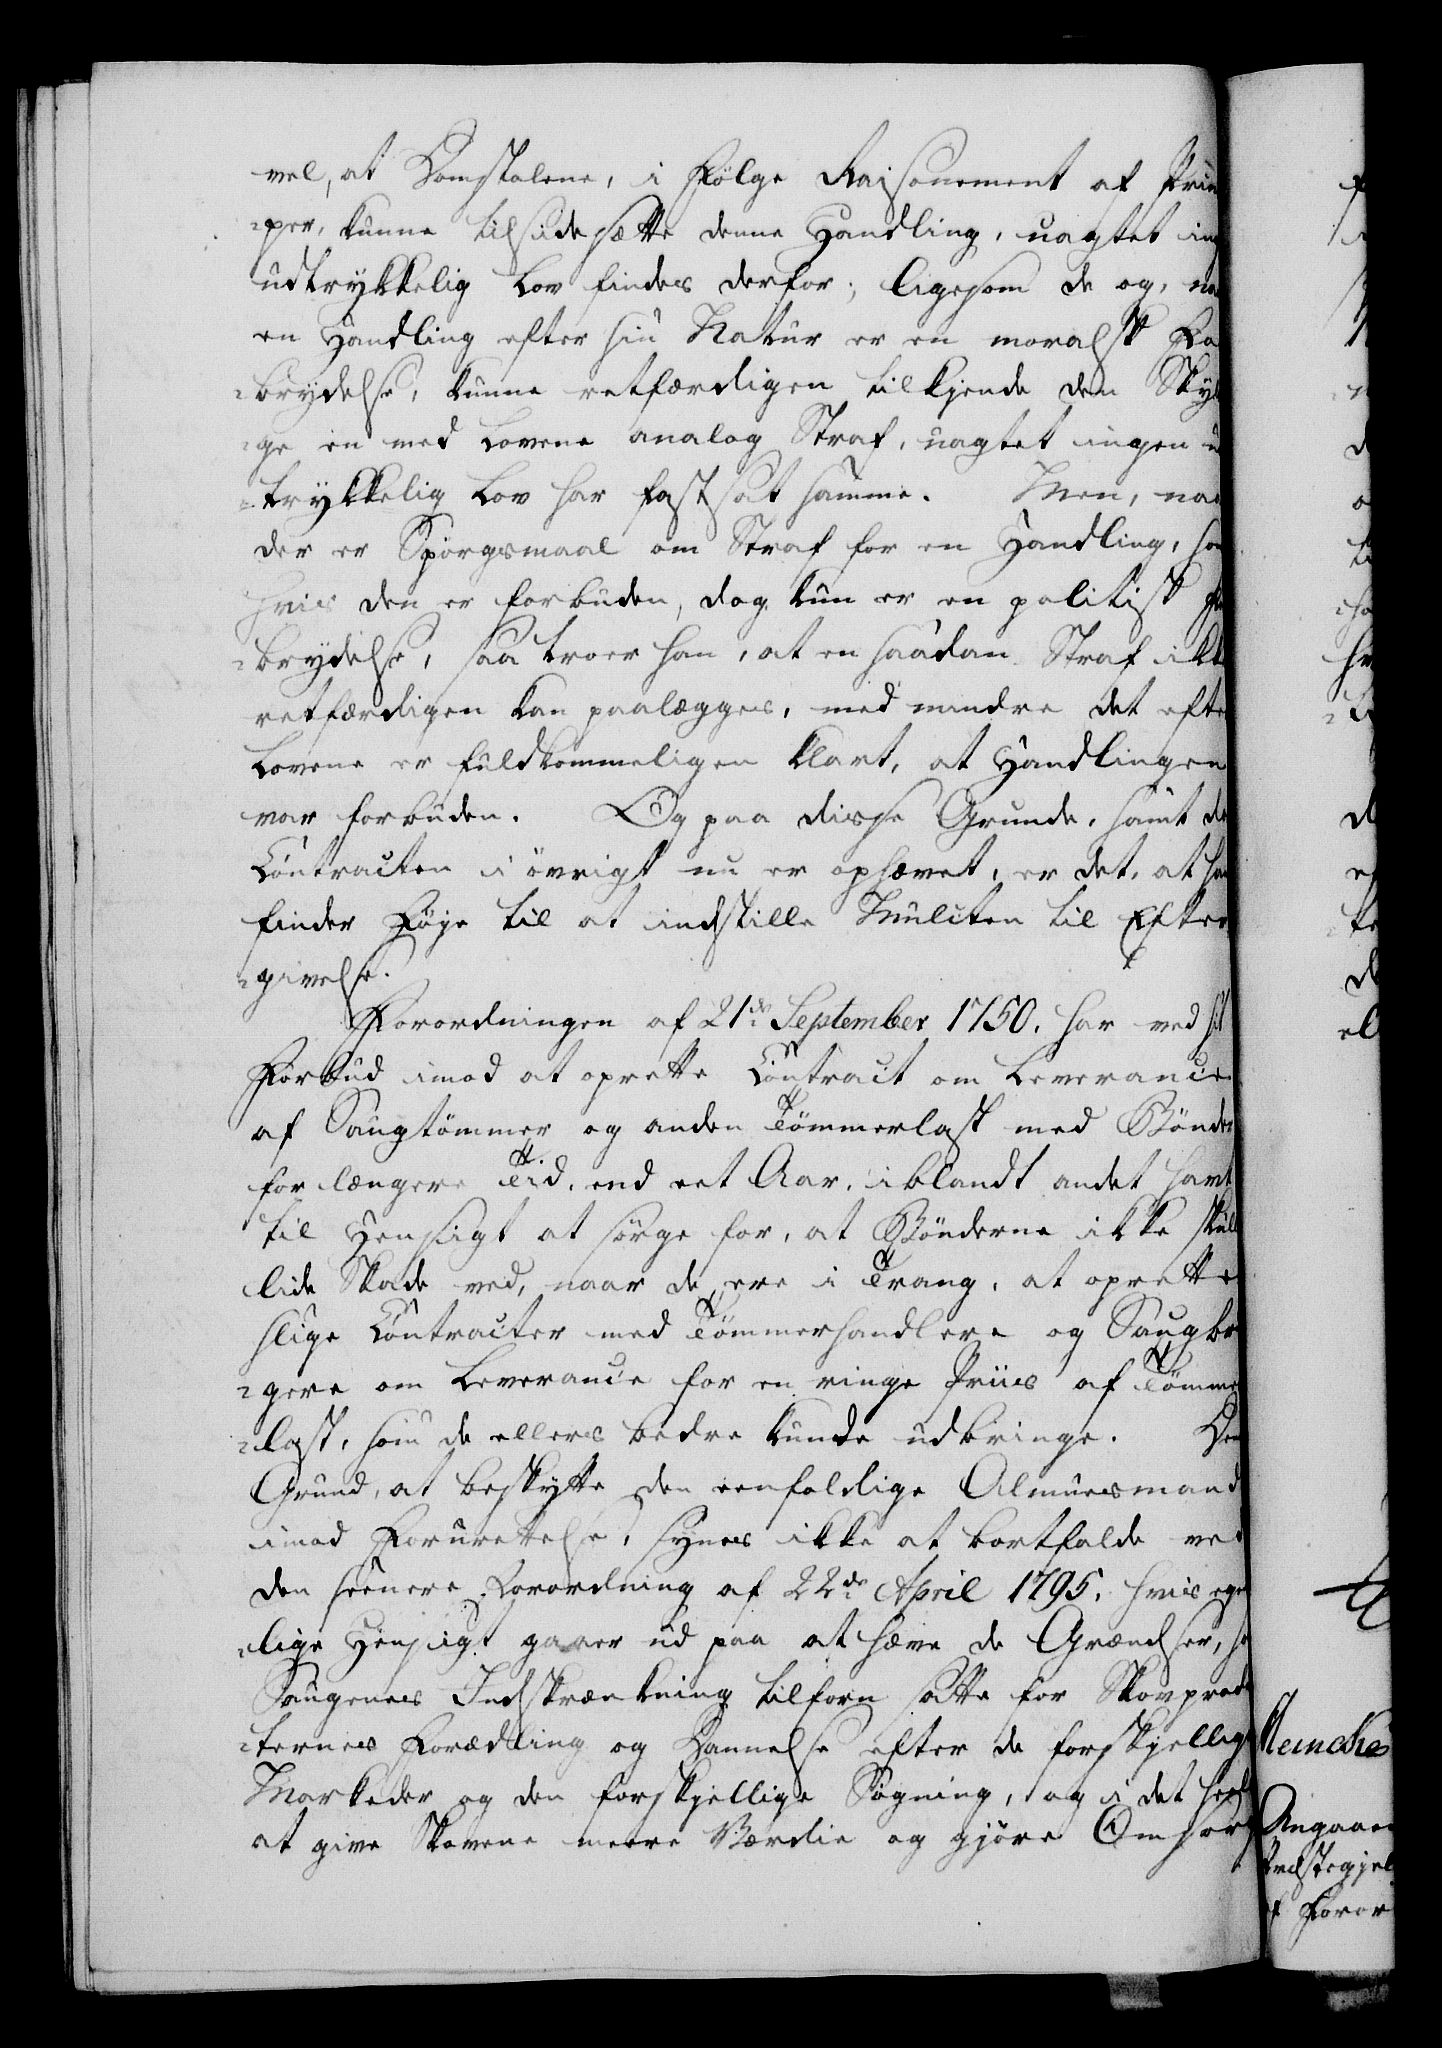 vel, at Domstolene, i Følge Raisonement af Prin
-per, kunne tilsidesætte denne Handling, uagtet ing
udtrykkelig Lov findes derfor; ligesom de og, naa
en Handling efter sin Natur er en moralsk For
-brydelse, kunne retfærdigen tilkjende den Skyl
-ge en med Lovene analog Straf, uagtet ingen u
-trykkelig Lov har fastsat samme. Men, naa
der er Spørgsmaal om Straf for en Handling, som
hvis den er forbuden, dog kun er en politisk For
-brydelse, saa troer han, at en saadan Straf ikke
retfærdigen kan paalægges, med mindre det efte
Lovene er fuldkommeligen klart, at Handlingen
var forbuden. Og paa disse Grunde, samt da
Contracten i øvrigt nu er ophævet, er det, at han
finder Føje til at indstille Mulcten til Efter
-givelse.
Forordningen af 21de September 1750. har ved sit
Forbud imod at oprette Contract om Leverance
af Saugtømmer og anden Tømmerlast med Bønder
for længere Tid, end eet Aar, iblandt andet havt
til Hensigt at sørge for, at Bønderne ikke skull
lide Skade ved, naar de ere i Trang, at oprette
slige Contracter med Tømmerhandlere og Saugbr
-gere om Leverance for en ringe Priis af Tømme
-last, som de ellers bedre kunde udbringe. Den
Grund, at beskytte den eenfoldige Almuesmand
imod Forurettelse, synes ikke at bortfalde ved
den seenere Forordning af 22de April 1795, hvis egen
-lige Hensigt gaaer ud paa at hæve de Grændser, so
Saugenes Indskrænkning tilforn satte for Skovprod
-ternes Forædling og Dannelse efter de forskjellige
Markeder og den forskjellige Søgning, og i det heele
at give Skovene meere Værdie og gjøre Omsor